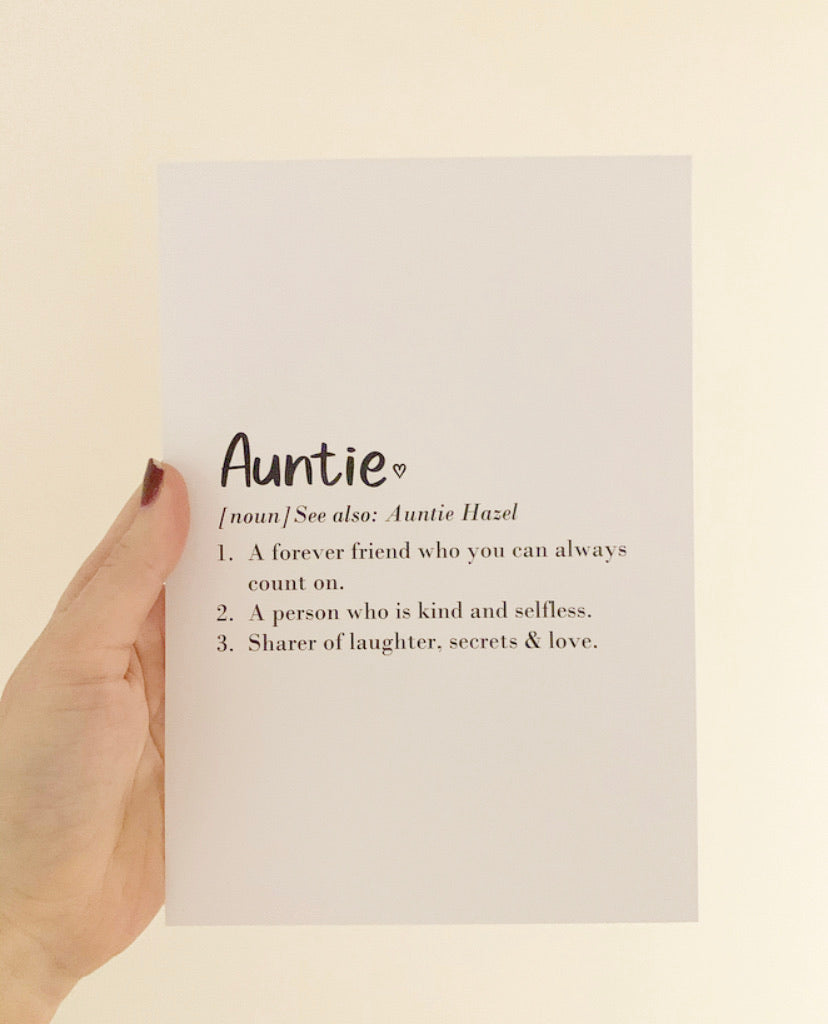 Auntie♡
[noun] See also: Auntie Hazel
1. A forever friend who you can always
count on.
2. A person who is kind and selfless.
3. Sharer of laughter, secrets & love.